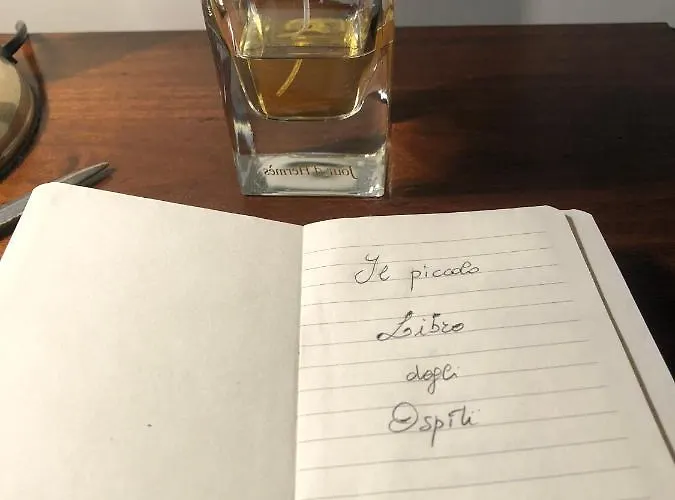 Jour d'Hermès
Il piccolo
Libro
degli
Ospiti